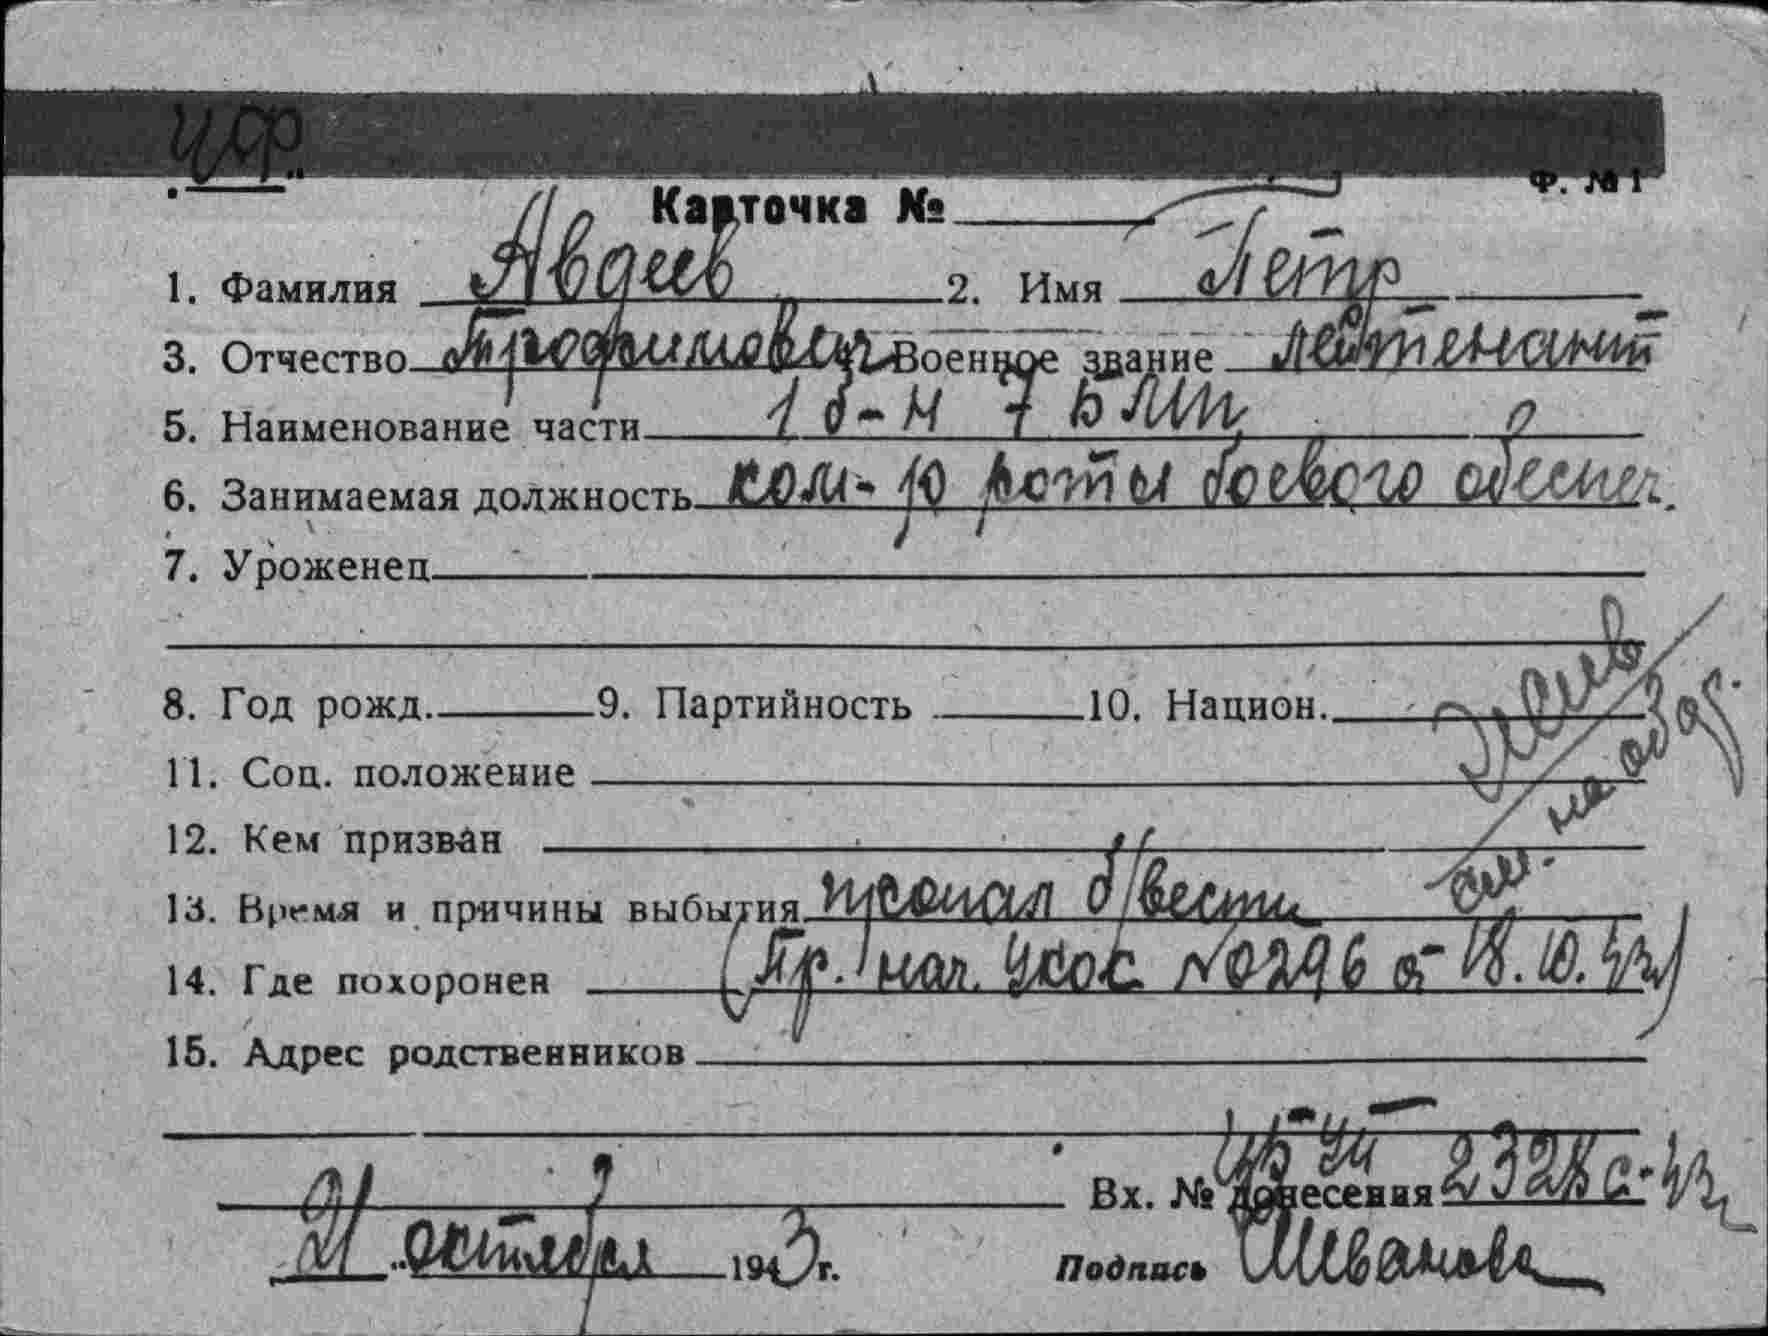 Ф. № 1
Карточка №
1. Фамилия Авдеев 2. Имя Петр
3. Отчество Трофимович Военное звание лейтенант
5. Наименование части 1 б-н 7 БМП
6. Занимаемая должность ком-р роты боевого обеспеч.
7. Уроженец
8. Год рожд. 9. Партийность 10. Национ.
11. Соц. положение
12. Кем призван
см. на обор.
13. Время и причины выбытия пропал б/вести
14. Где похоронен (Пр. нач. УКОС №0296 от 18.10.43)
15. Адрес родственников
Вх. № донесения
21 октября 1943 г. Подпись Иванова